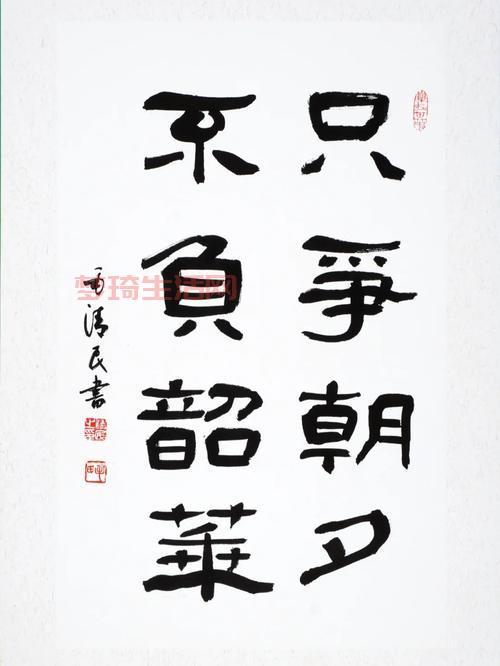 只爭朝夕
不負韶華
清民書
梦琦生活网